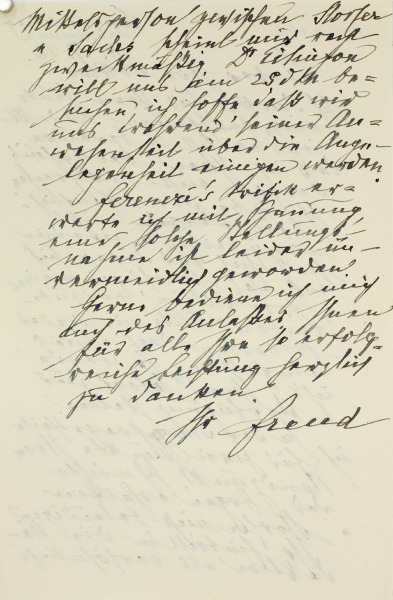 Mittelsperson zwischen Storfer
u Sachs scheint mir recht
zweckmäßig. Dr Eitingon
will uns am 25 dM be=
suchen ich hoffe daß wir
uns während seiner An=
wesenheit über die Ange=
legenheit einigen werden.
Ferenczi's Kritik er=
warte ich mit Spannung
eine solche Stellung=
nahme ist leider un=
vermeidlich geworden.
Gerne bediene ich mich
auch des Anlaßes Ihnen
für alle Ihre so erfolg=
reiche Leistung herzlich
zu danken
Ihr Freud